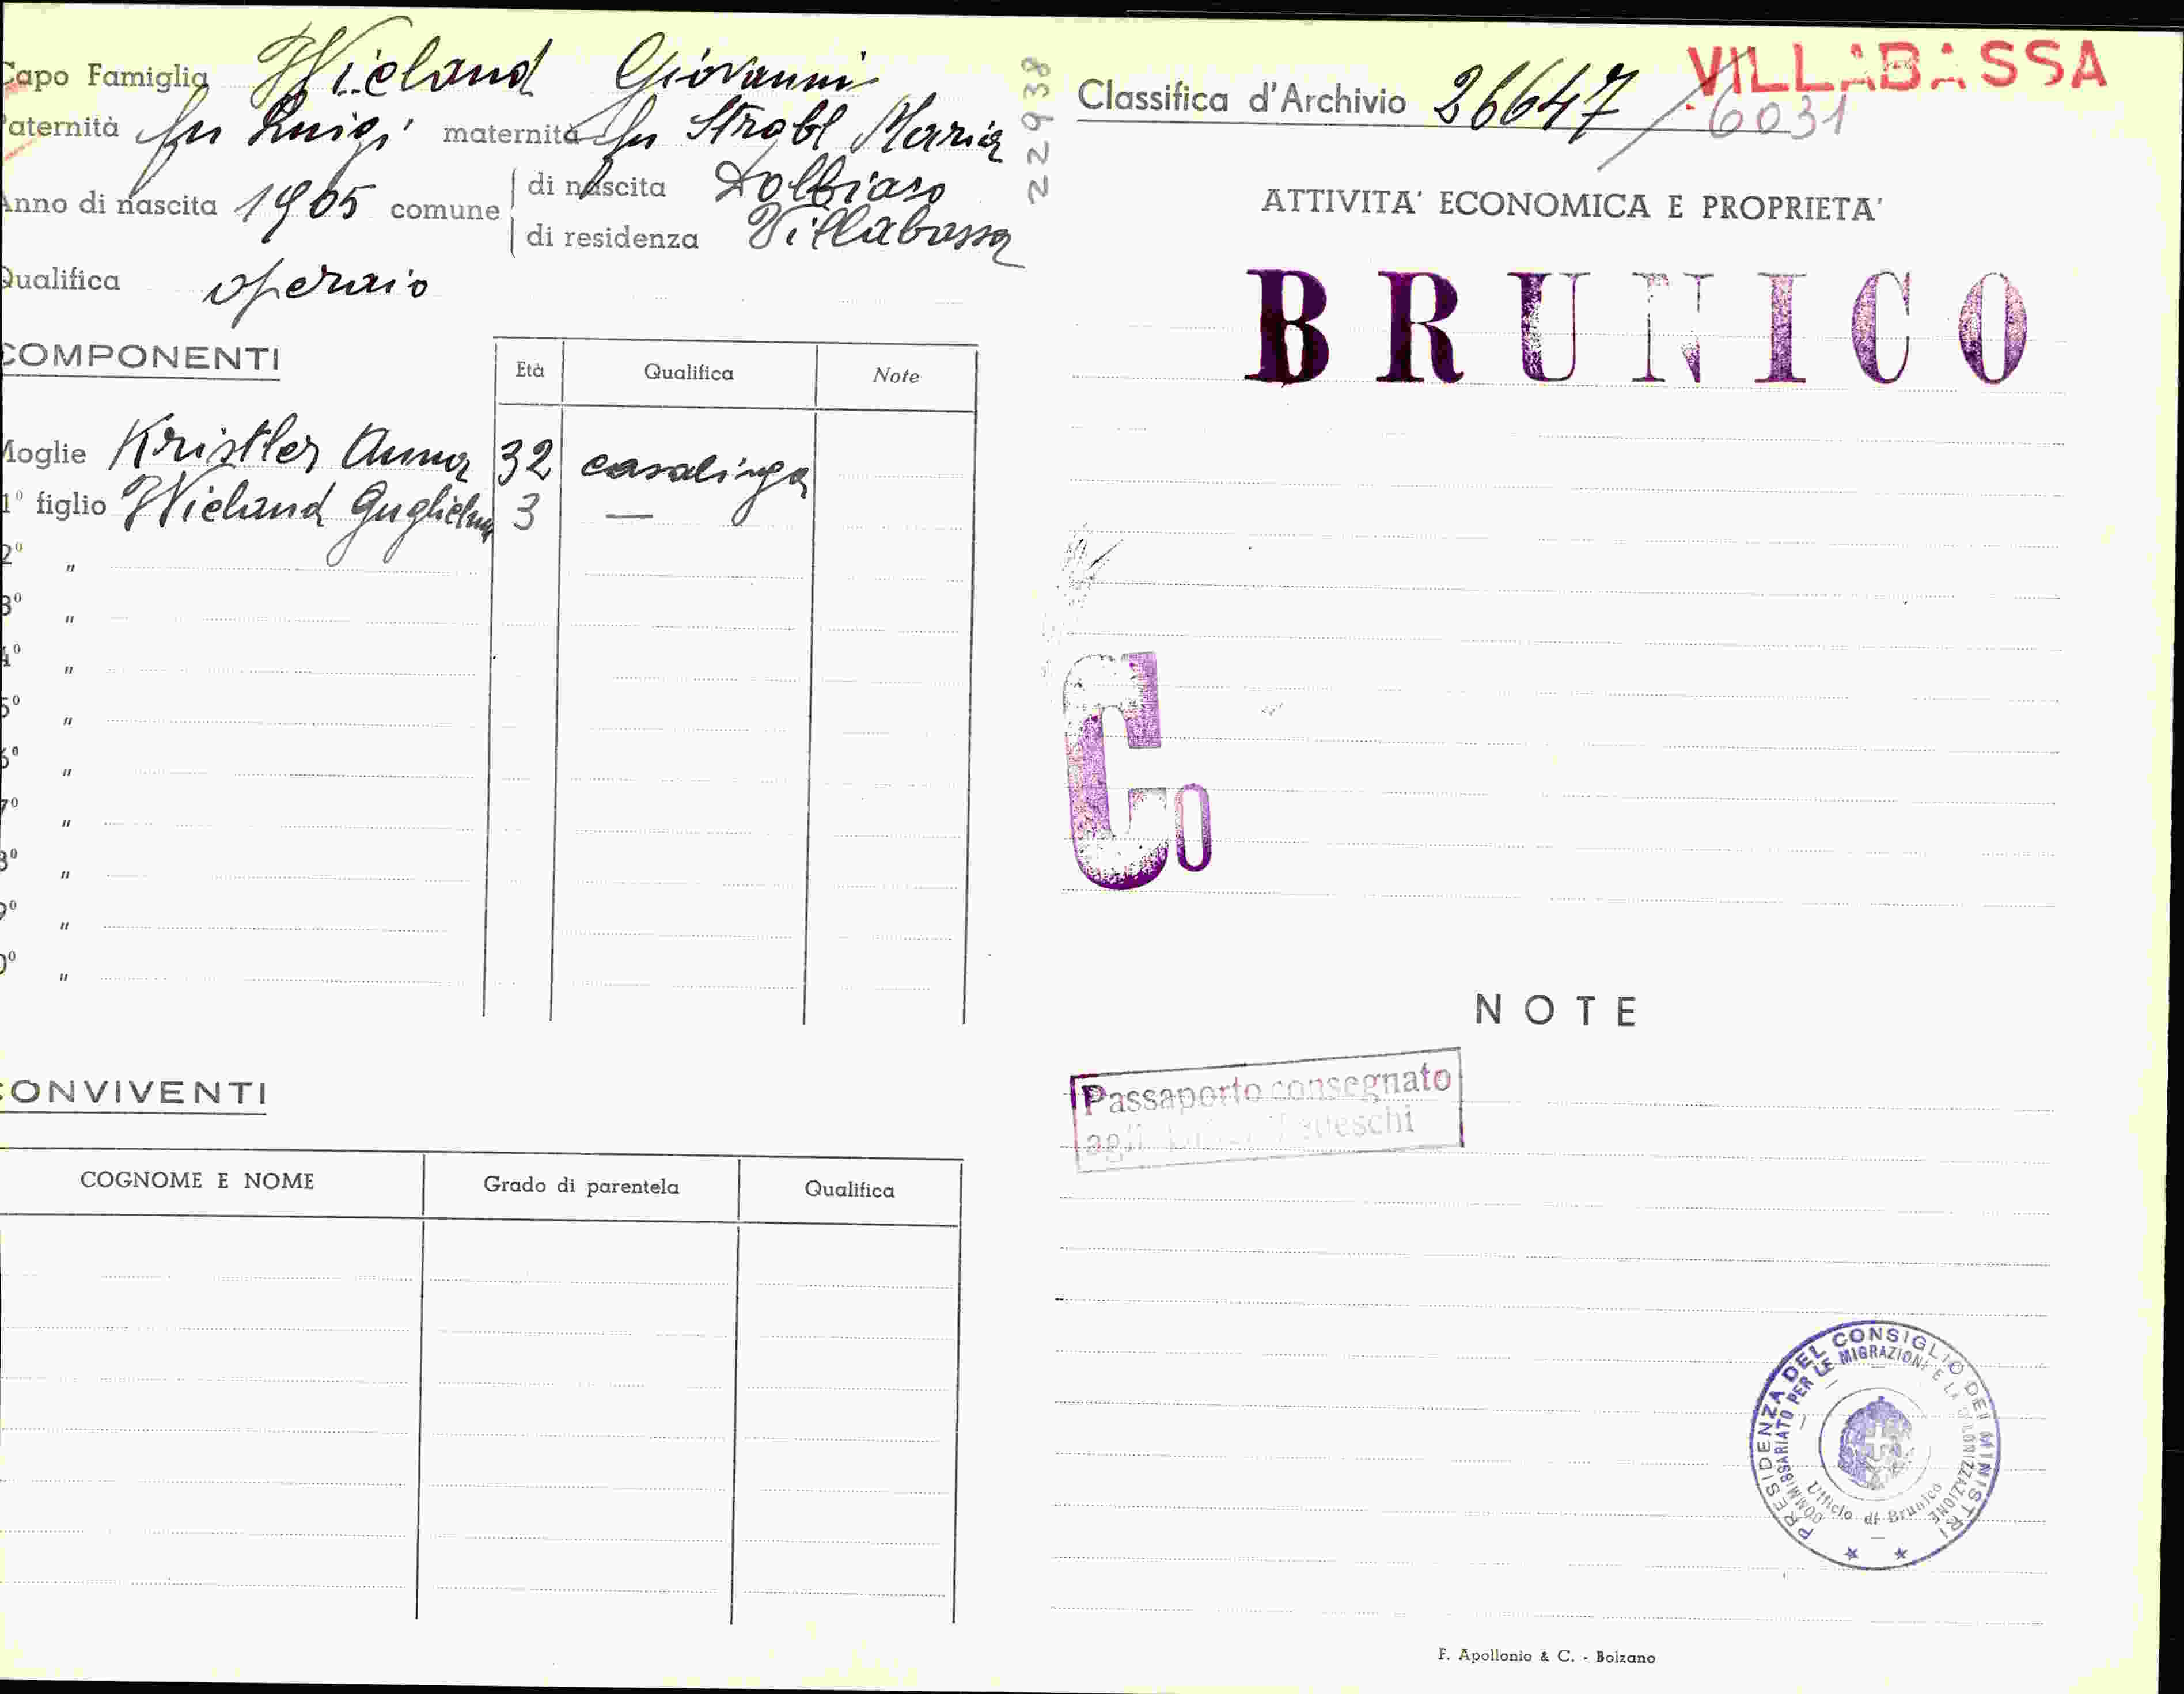 Capo Famiglia Wieland Giovanni
Paternità fu Luigi maternità fu Strobl Maria
Anno di nascita 1905 comune di nascita Dobbiaco
di residenza Villabassa
Qualifica operaio
COMPONENTI
Età Qualifica Note
Moglie Kristler Anna 32 casalinga
1º figlio Wieland Guglielmo 3 —
2º "
3º "
4º "
5º "
6º "
7º "
8º "
9º "
10º "
CONVIVENTI
COGNOME E NOME Grado di parentela Qualifica
22938
VILLABASSA
Classifica d'Archivio 26647/6031
ATTIVITA' ECONOMICA E PROPRIETA'
BRUNICO
Co
NOTE
Passaporto consegnato
agli Tedeschi
PRESIDENZA DEL CONSIGLIO DEI MINISTRI
COMMISSARIATO PER LE MIGRAZIONI E LA COLONIZZAZIONE
Ufficio di Brunico
F. Apollonio & C. - Bolzano